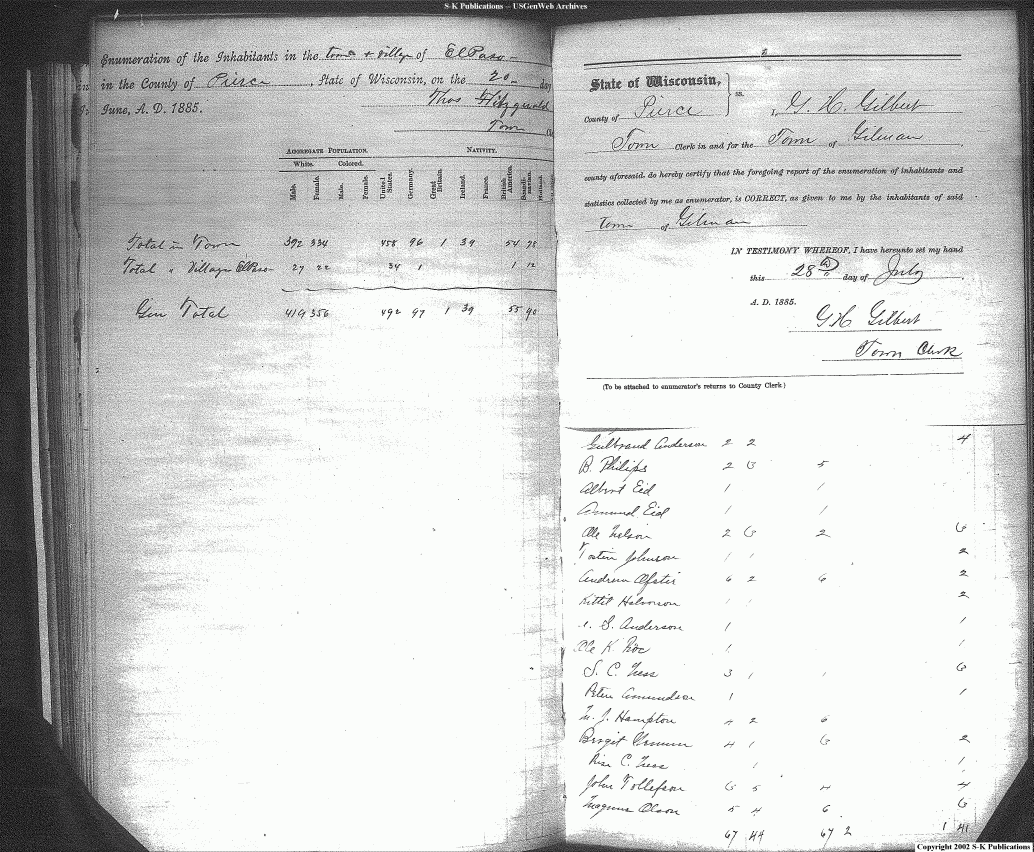 S-K Publications -- USGenWeb Archives
Enumeration of the Inhabitants in the town + village of El Paso
in the County of Pierce, State of Wisconsin, on the 20 day
June, A. D. 1885.
Thos Fitzgerald
Town
AGGREGATE POPULATION. NATIVITY.
White. Colored.
Male. Female. Male. Female. United States. Germany. Great Britain. Ireland. France. British America. Scandinavian. Holland.
Total in Town 392 334 458 96 1 39 54 78
Total " Village El Paso 27 22 34 1 1 12
Gen Total 419 356 492 97 1 39 55 90
2
State of Wisconsin,
County of Pierce ss. I, G. H. Gilbert
Town Clerk in and for the Town of Gilman
county aforesaid, do hereby certify that the foregoing report of the enumeration of inhabitants and
statistics collected by me as enumerator, is CORRECT, as given to me by the inhabitants of said
Town of Gilman
IN TESTIMONY WHEREOF, I have hereunto set my hand
this 28th day of July
A. D. 1885.
G H Gilbert
Town Clerk
(To be attached to enumerator's returns to County Clerk)
Gulbrand Anderson 2 2 4
B. Philips 2 3 5
Albert Eid 1 1
Amund Eid 1 1
Ole Nelson 2 6 2 6
Tosten Johnson 1 1 2
Andrew 6 2 6 2
Kittil Halvorson 1 1 2
S. Anderson 1 1
Ole K. 1 1
S. C. 3 1 1 3
Peter Amundson 1 1
J. Hampton 4 2 6
Bergit 4 1 3 2
C. 1 1
John Tollefson 3 5 4 4
Magnus Olson 5 4 6 3
67 44 67 2 1 41
Copyright 2002 S-K Publications